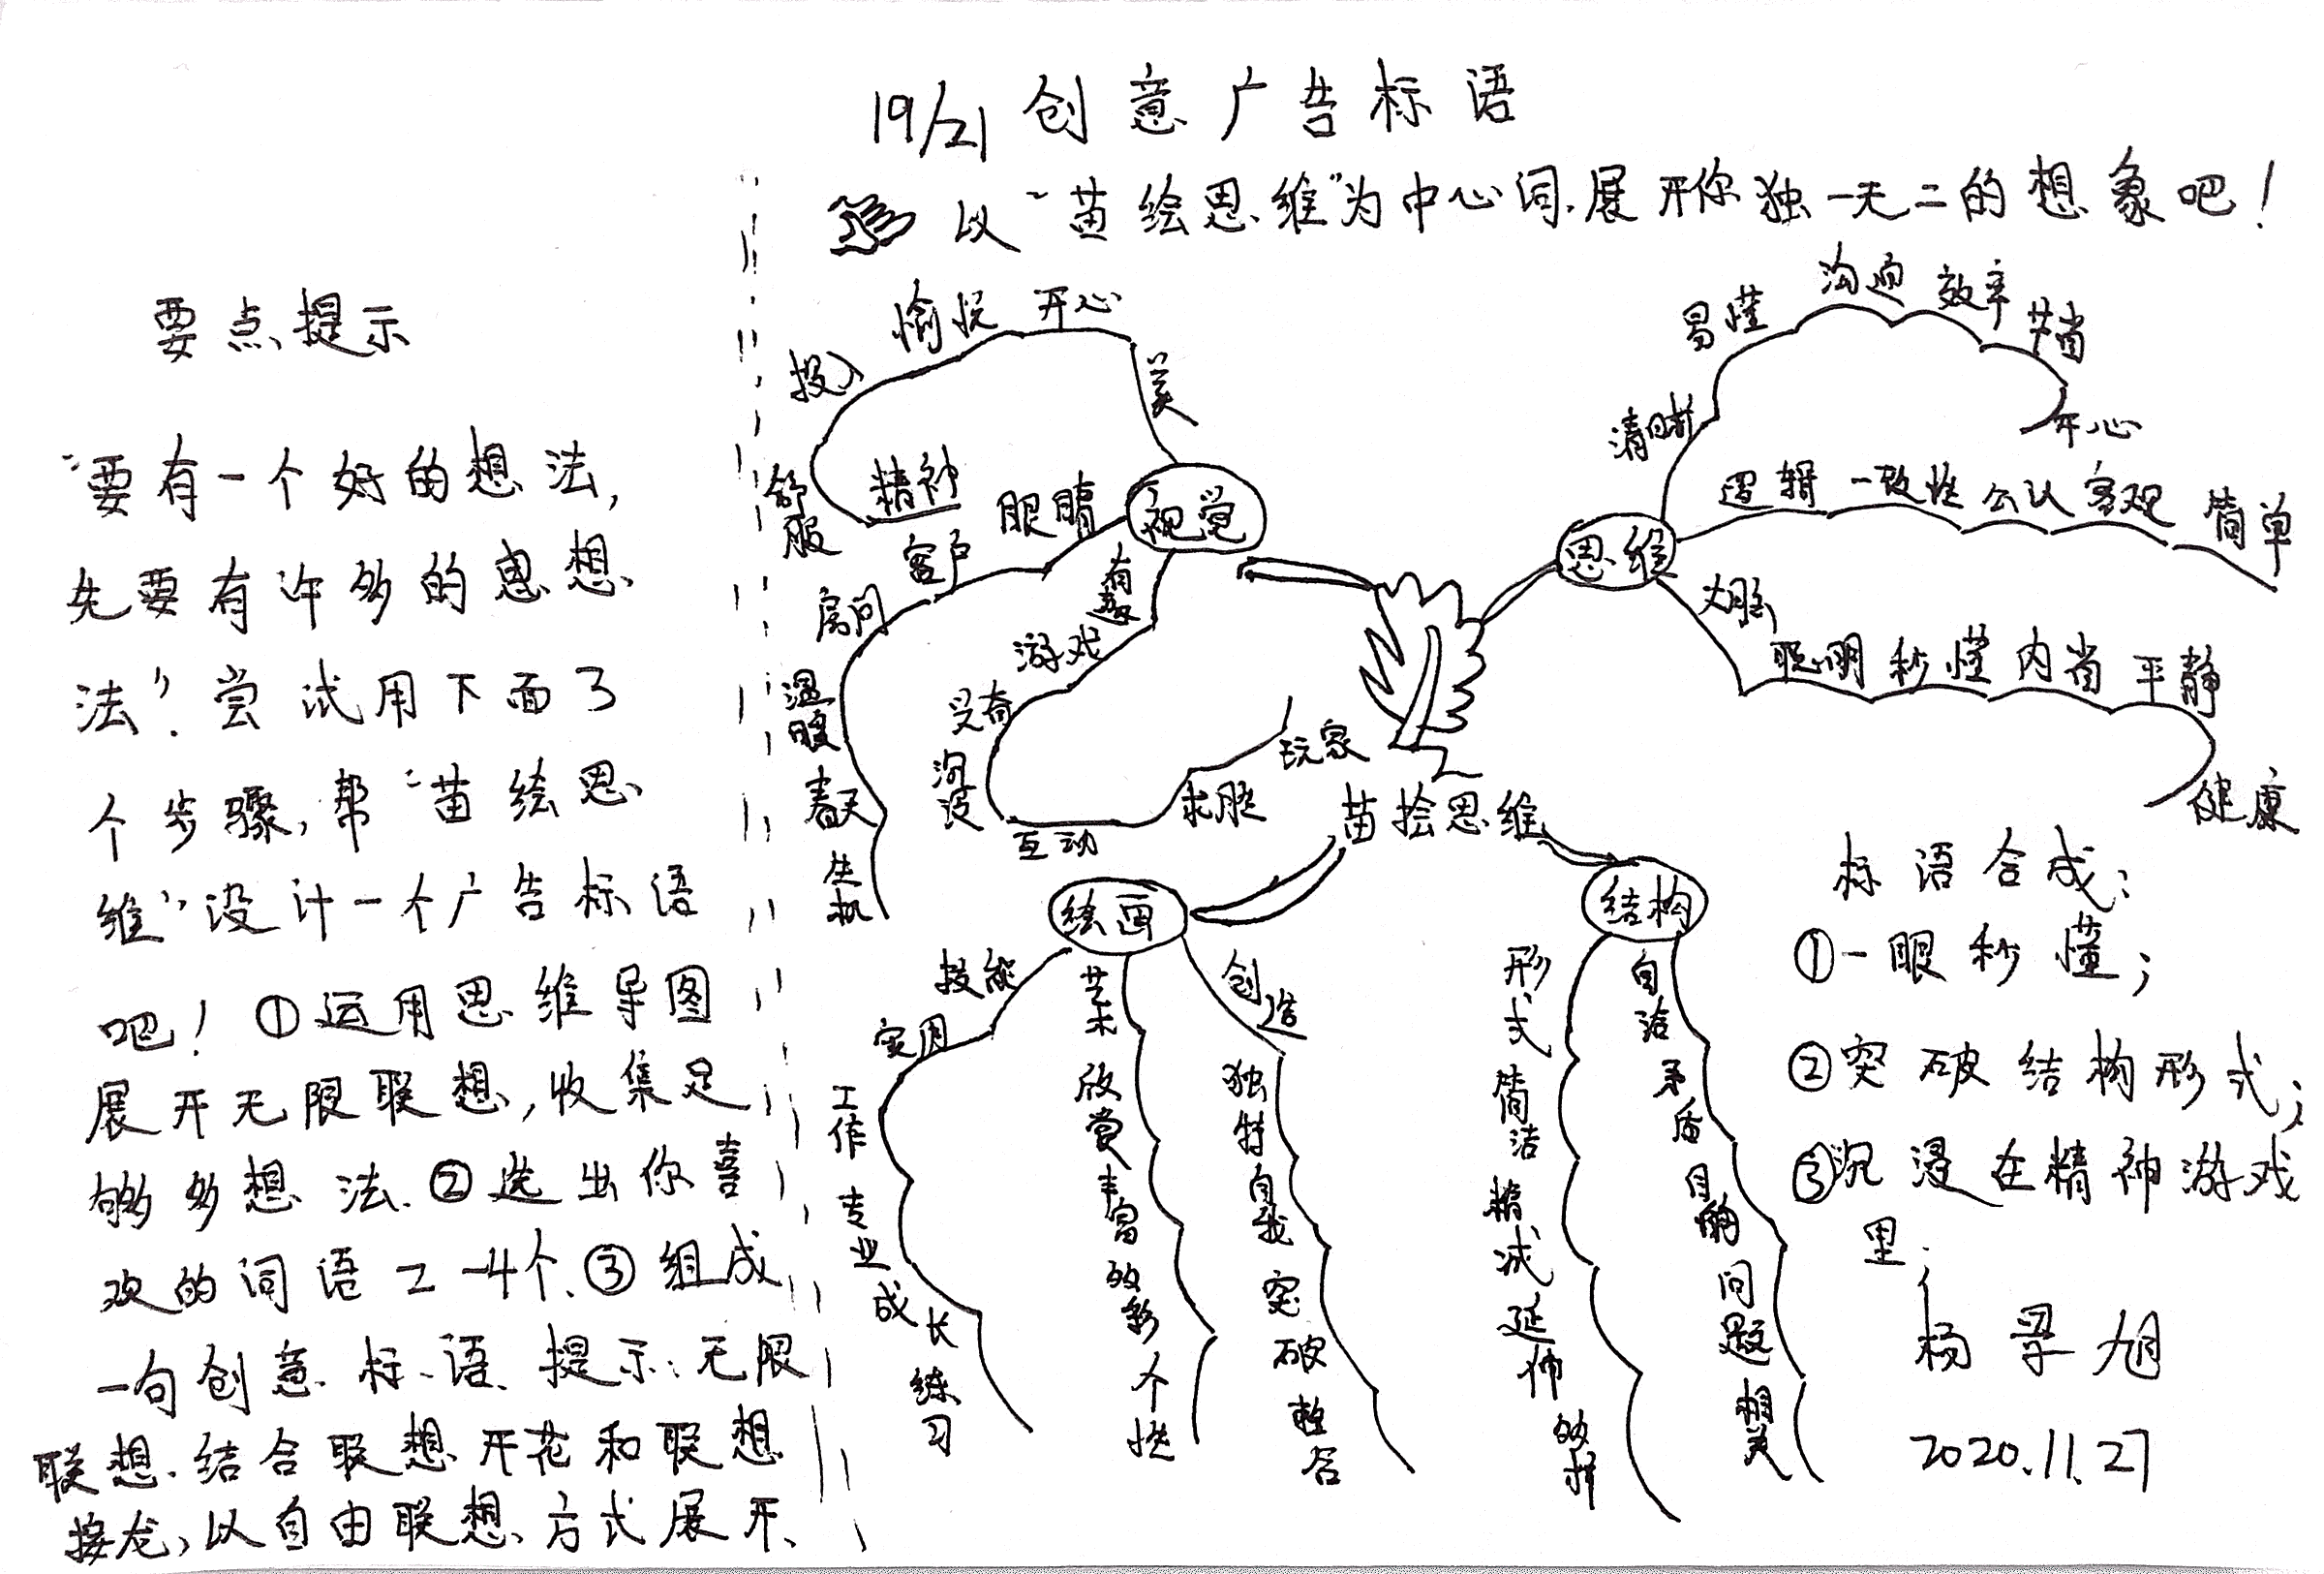 19/21 创意广告标语
以“苗绘思维”为中心词.展开你独一无二的想象吧！
要点提示
“要有一个好的想法,
先要有许多的思想
法”.尝试用下面3
个步骤,帮“苗绘思
维”设计一个广告标语
吧！①运用思维导图
展开无限联想,收集足
够多想法.②选出你喜
欢的词语2-4个.③组成
一句创意标语.提示:无限
联想.结合联想开花和联想
接龙,以自由联想方式展开.
苗绘思维
视觉
美
开心
愉悦
投入
舒服
精神
眼睛
客户
房间
温暖
春天
生机
有趣
游戏
沉浸
互动
求胜
玩家
思维
清晰
易懂
沟通
效率
节省
开心
逻辑
一致性
公认
客观
简单
大脑
聪明
秒懂
内省
平静
健康
绘画
技能
实用
工作
专业
成长
练习
艺术
欣赏
丰富
个性
创造
独特
自我
突破
整合
结构
形式
简洁
精减
延伸
自洽
矛盾
目的
问题
标语合成:
①一眼秒懂;
②突破结构形式;
③沉浸在精神游戏
里.
2020.11.27